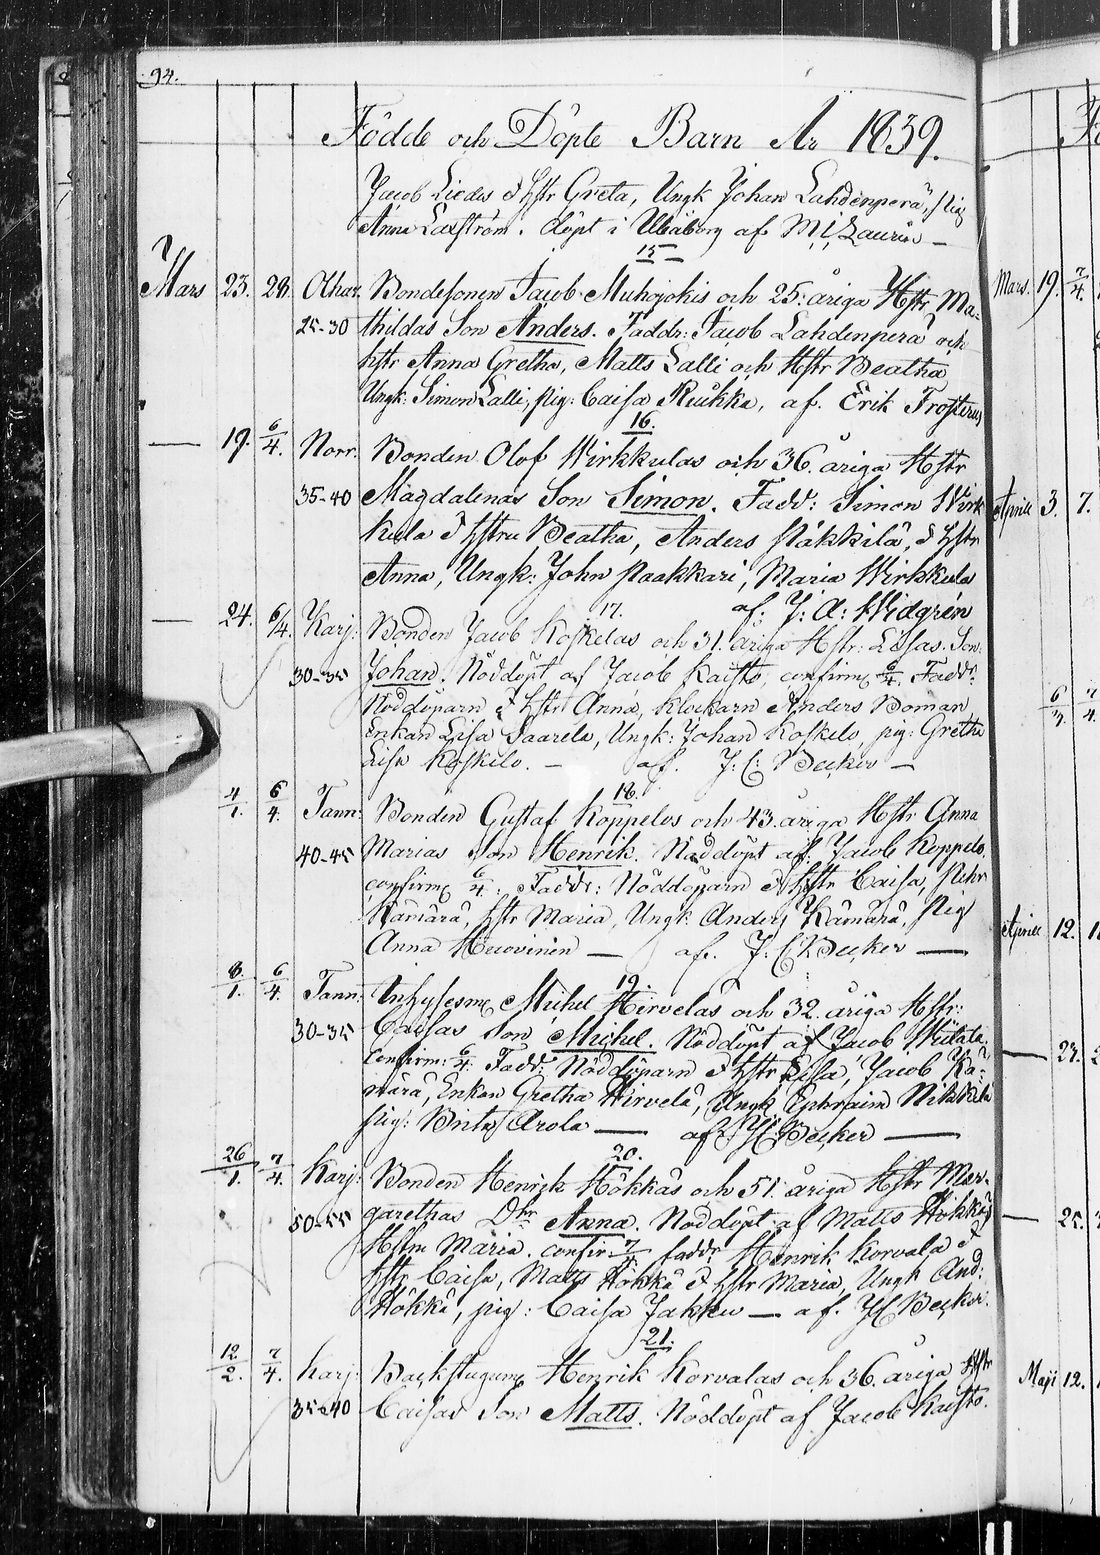 94.
Födde och Döpte Barn År 1839.
Jacob Liedes & hstr Greta, Ungk Johan Lahdenperä, pig
Anna Laxström. döpt i Uleåborg af M. Laurin —
15 —
Mars 23. 28. Olhav. Bondesonen Jacob Muhojokis och 25: åriga Hstr Ma-
25-30 thildas Son Anders. Faddr: Jacob Lahdenperä och
hstr Anna Gretha, Matts Lalli och Hstr Beatha
Ungk: Simon Lalli, pig: Caisa Ruikka, af. Erik Frosterus
16.
— 19. 6/4. Norr. Bonden Olof Wirkkulas och 36. åriga Hstr
35-40 Magdalenas Son Simon. Fadd: Simon Wirk
kula & hstru Beatha, Anders Näkkilä, & hstr
Anna, Ungk: John Paakkari, Maria Wirkkula
af: J: A: Widgrén
17.
— 24. 6/4. Karj: Bonden Jacob Koskelas och 31. åriga Hstr: Lisas. Son:
30-35 Johan. Nöddöpt af Jacob Kaisto, confirm 6/4. Faddr:
Nöddöparn & hstr Anna, klockarn Anders Boman
Enkan Lisa Saarela, Ungk: Johan Koskelo, pig: Gretha
Lisa Koskelo. — af. J: C: Becker —
18.
4/1. 6/4. Tann: Bonden Gustaf Koppelos och 43. åriga Hstr Anna
40-45 Marias Son Henrik. Nöddöpt af: Jacob Koppelo.
confirm 6/4. Faddr: Nöddöparn & hstr Caisa, Pehr
Kämärä, hstr Maria, Ungk Anders Kämärä, Pig
Anna Huovinen — af. J. C. Becker —
19.
8/1. 6/4. Tann: Inhysesm Michel Hirvelas och 32. åriga Hstr:
30-35 Caisas Son Michel. Nöddöpt af Jacob
confirm: 6/4. Faddr: Nöddöparn & hstr Lisa, Jacob Kä-
märä, Enkan Gretha Hirvelä, Ungk Ephraim Nikkilä
pig: Brita Arola — af JC Becker —
20.
26/1. 7/4. Karj: Bonden Henrik Hökkäs och 51. åriga Hstr Mar-
50-55 garethas Dtr Anna. Nöddöpt af Matts Hökkäs
Hstru Maria. confir 7/4 faddr Henrik Korvala &
hstr Caisa, Matts Hökkä & hstr Maria, Ungk And:
Hökkä, pig: Caisa Jakku — af. JC Becker.
21.
12/2. 7/4. Karj: Backstugum Henrik Korvalas och 36. åriga Hstr
35-40 Caisas Son Matts. Nöddöpt af Jacob Kaisto.
Mars. 19. 7/4.
Aprill 3. 7.
6/3. 7/4.
Aprill 12.
— 23.
— 25.
Maji 12.